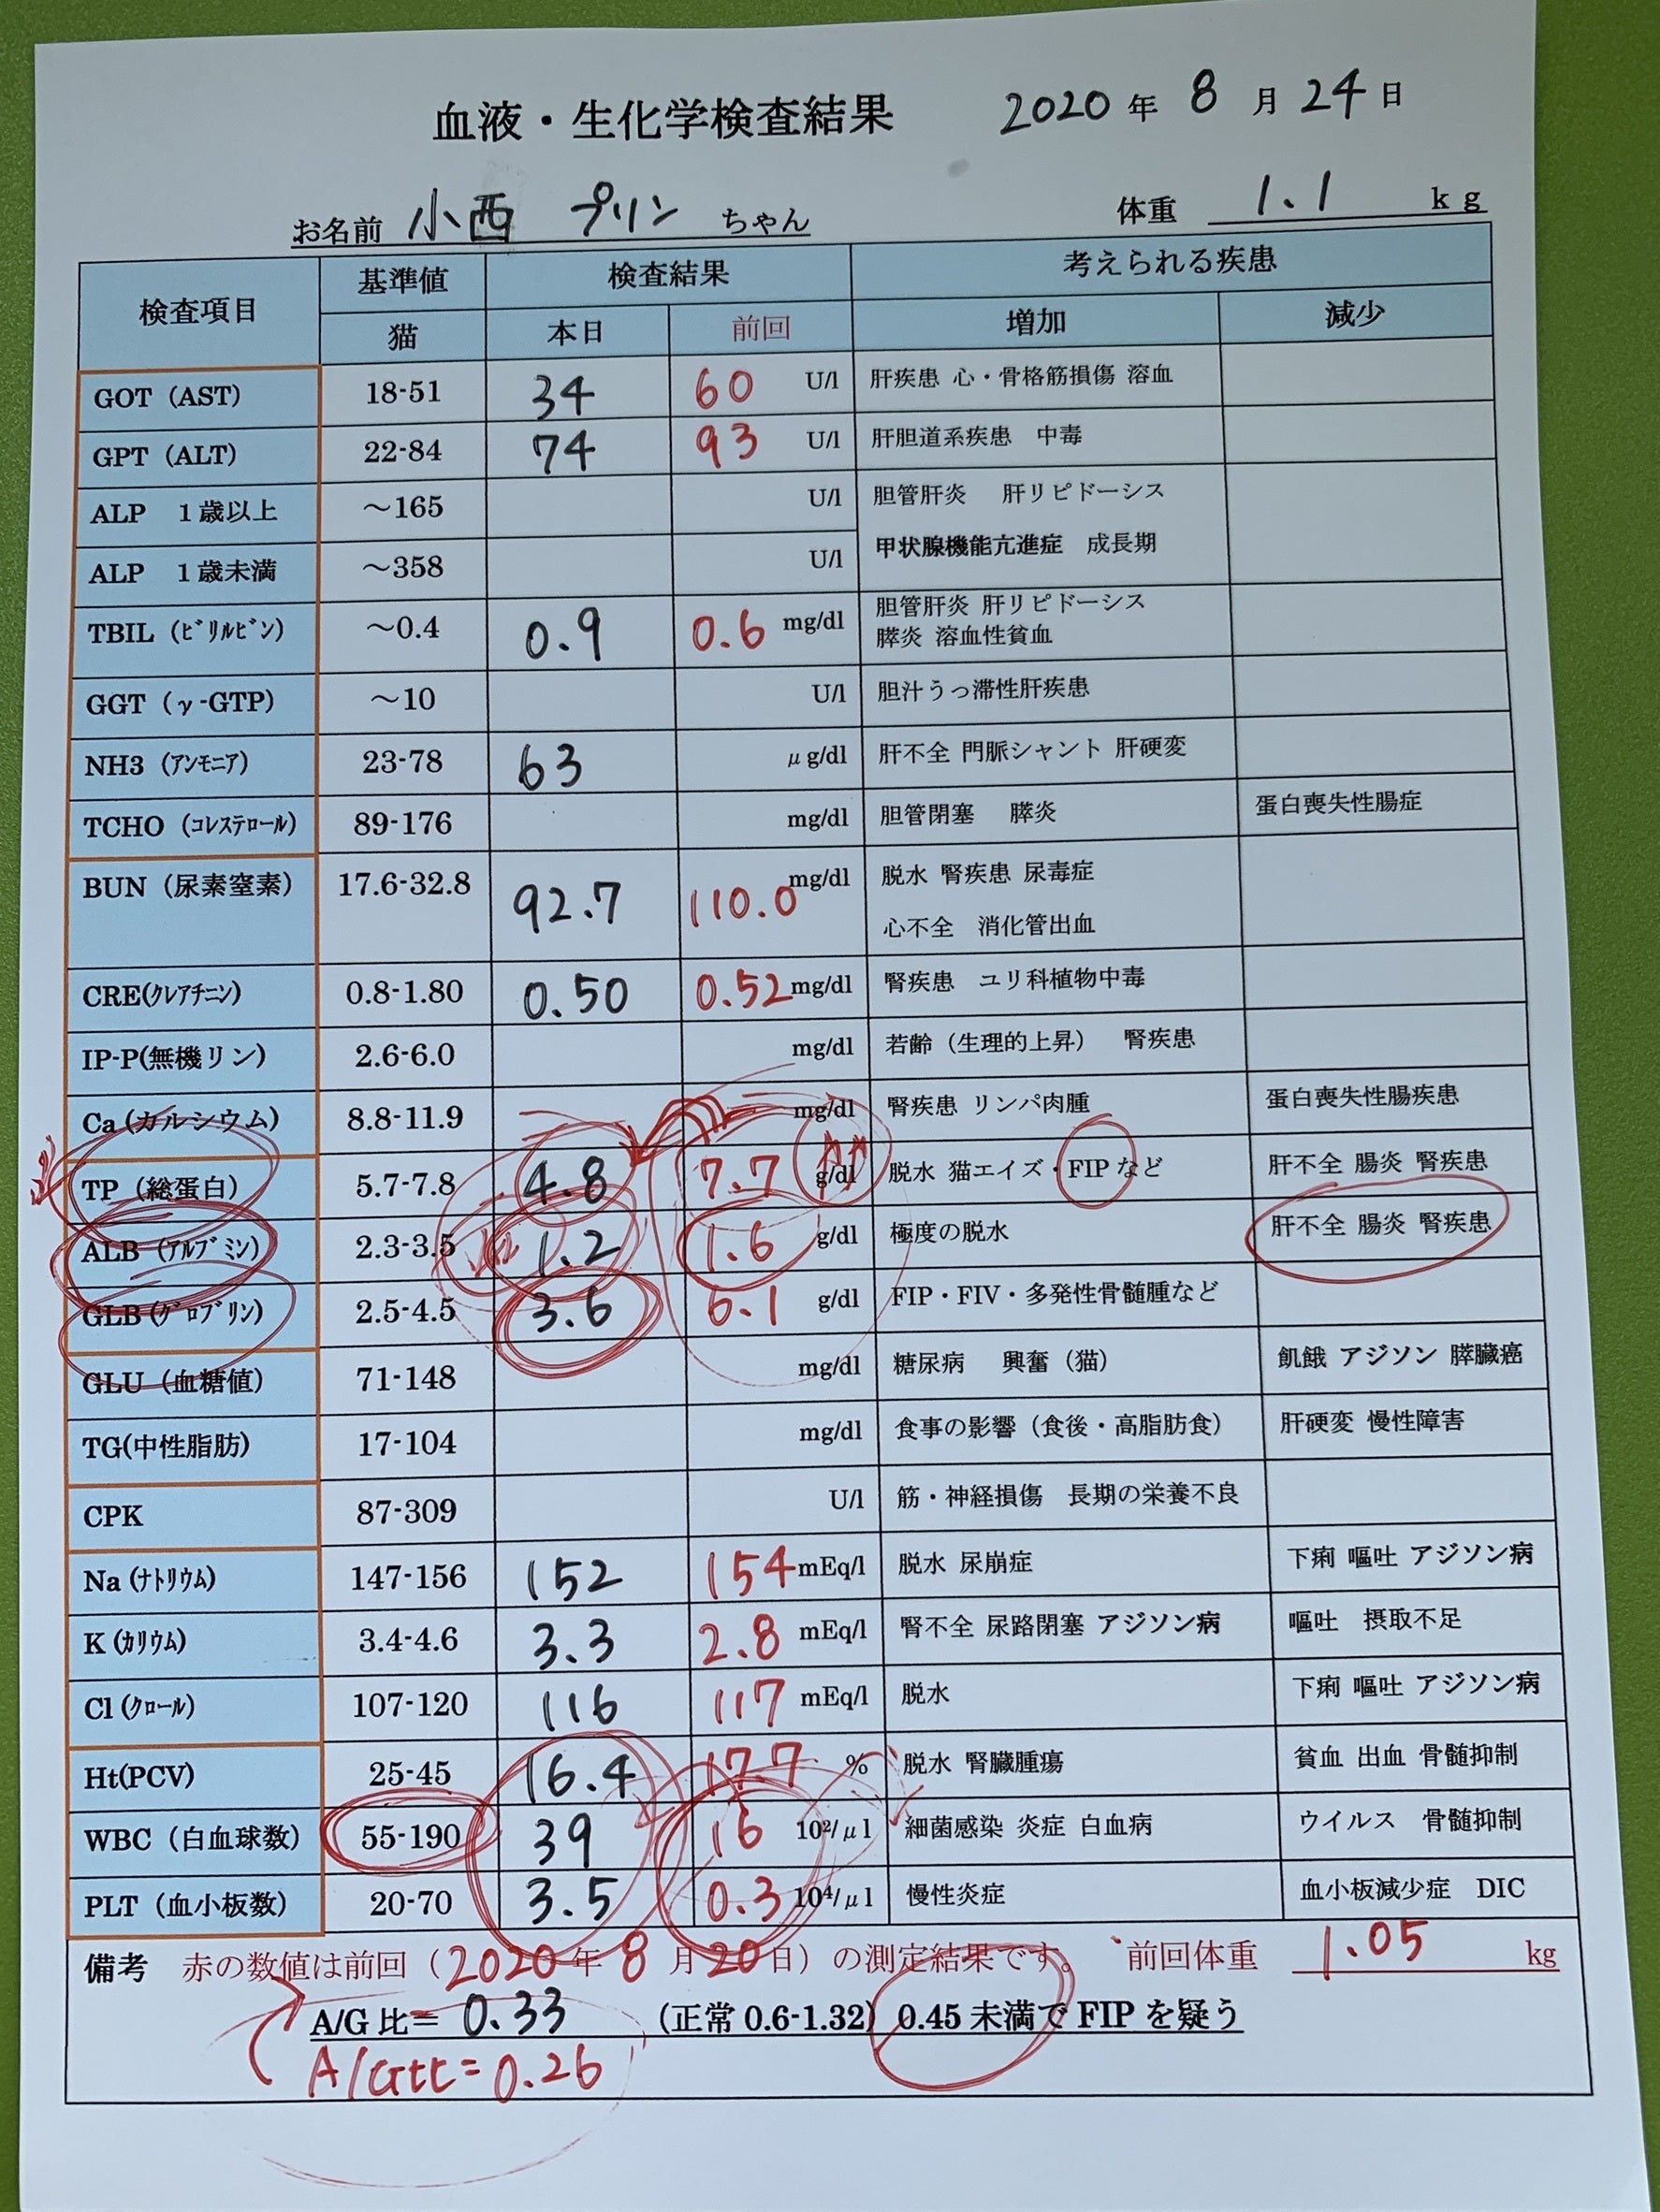 血液・生化学検査結果 2020 年 8 月 24 日
お名前 小西 プリン ちゃん 体重 1.1 kg
検査項目 基準値 検査結果 考えられる疾患
猫 本日 前回 増加 減少
GOT (AST) 18-51 34 60 U/l 肝疾患 心・骨格筋損傷 溶血
GPT (ALT) 22-84 74 93 U/l 肝胆道系疾患 中毒
ALP 1歳以上 ～165 U/l 胆管肝炎 肝リピドーシス
甲状腺機能亢進症 成長期
ALP 1歳未満 ～358 U/l
TBIL (ﾋﾞﾘﾙﾋﾞﾝ) ～0.4 0.9 0.6 mg/dl 胆管肝炎 肝リピドーシス
膵炎 溶血性貧血
GGT (γ-GTP) ～10 U/l 胆汁うっ滞性肝疾患
NH3 (ｱﾝﾓﾆｱ) 23-78 63 μg/dl 肝不全 門脈シャント 肝硬変
TCHO (ｺﾚｽﾃﾛｰﾙ) 89-176 mg/dl 胆管閉塞 膵炎 蛋白喪失性腸症
BUN (尿素窒素) 17.6-32.8 92.7 110.0 mg/dl 脱水 腎疾患 尿毒症
心不全 消化管出血
CRE(ｸﾚｱﾁﾆﾝ) 0.8-1.80 0.50 0.52 mg/dl 腎疾患 ユリ科植物中毒
IP-P(無機リン) 2.6-6.0 mg/dl 若齢（生理的上昇） 腎疾患
Ca (カルシウム) 8.8-11.9 mg/dl 腎疾患 リンパ肉腫 蛋白喪失性腸疾患
TP (総蛋白) 5.7-7.8 4.8 7.7 g/dl 脱水 猫エイズ・FIPなど 肝不全 腸炎 腎疾患
ALB (ｱﾙﾌﾞﾐﾝ) 2.3-3.5 1.2 1.6 g/dl 極度の脱水 肝不全 腸炎 腎疾患
GLB (ｸﾞﾛﾌﾞﾘﾝ) 2.5-4.5 3.6 6.1 g/dl FIP・FIV・多発性骨髄腫など
GLU (血糖値) 71-148 mg/dl 糖尿病 興奮（猫） 飢餓 アジソン 膵臓癌
TG(中性脂肪) 17-104 mg/dl 食事の影響（食後・高脂肪食） 肝硬変 慢性障害
CPK 87-309 U/l 筋・神経損傷 長期の栄養不良
Na (ﾅﾄﾘｳﾑ) 147-156 152 154 mEq/l 脱水 尿崩症 下痢 嘔吐 アジソン病
K (ｶﾘｳﾑ) 3.4-4.6 3.3 2.8 mEq/l 腎不全 尿路閉塞 アジソン病 嘔吐 摂取不足
Cl (ｸﾛｰﾙ) 107-120 116 117 mEq/l 脱水 下痢 嘔吐 アジソン病
Ht(PCV) 25-45 16.4 17.7 % 脱水 腎臓腫瘍 貧血 出血 骨髄抑制
WBC (白血球数) 55-190 39 16 10²/μl 細菌感染 炎症 白血病 ウイルス 骨髄抑制
PLT (血小板数) 20-70 3.5 0.3 10⁴/μl 慢性炎症 血小板減少症 DIC
備考 赤の数値は前回（2020年 8 月 20日）の測定結果です。 前回体重 1.05 kg
A/G 比＝ 0.33 (正常 0.6-1.32) 0.45 未満で FIP を疑う
A/G比＝0.26